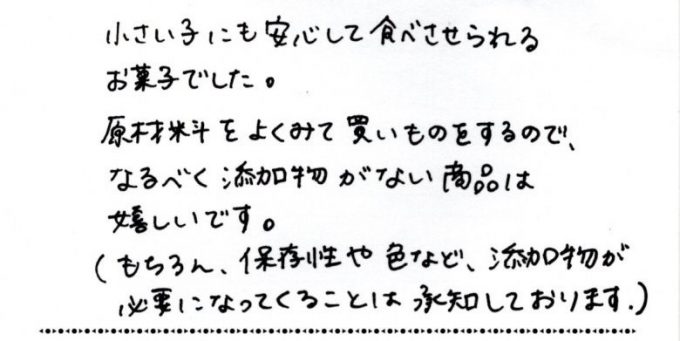 小さい子にも安心して食べさせられる
お菓子でした。
原材料をよくみて買いものをするので、
なるべく添加物がない商品は
嬉しいです。
(もちろん、保存性や色など、添加物が
必要になってくることは承知しております.)